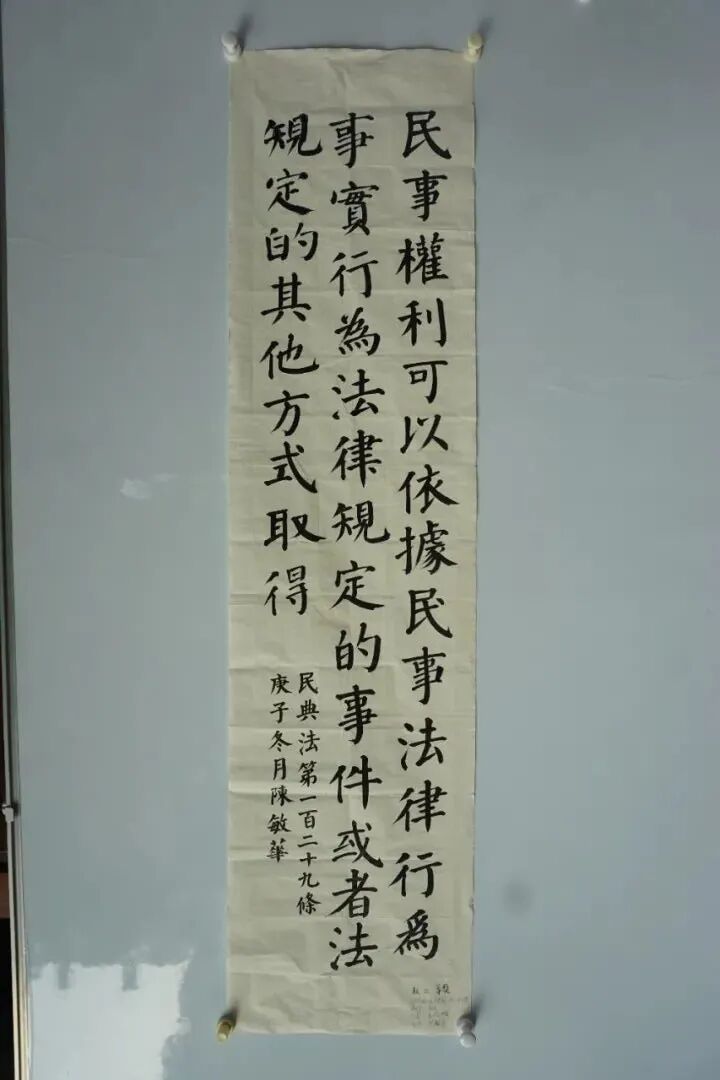 民事權利可以依據民事法律行爲
事實行為法律規定的事件或者法
規定的其他方式取得
民典法第一百二十九條
庚子冬月陳敏華